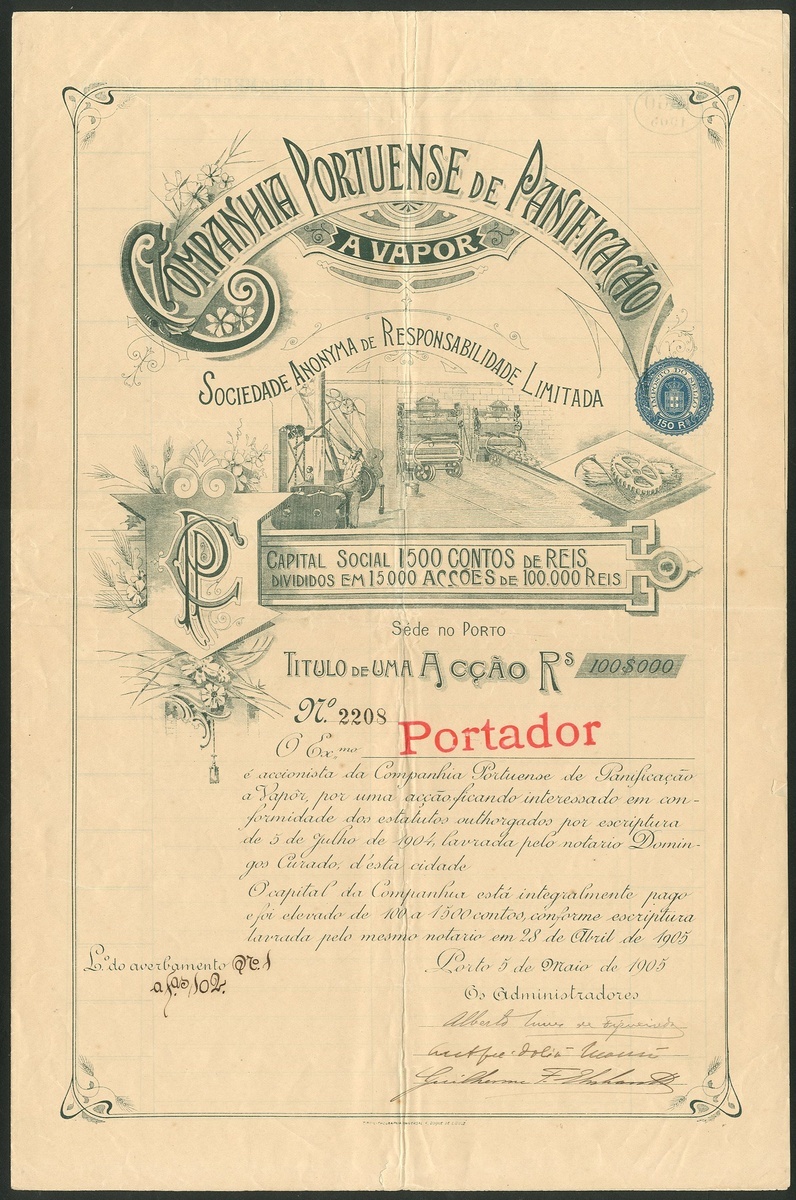 COMPANHIA PORTUENSE DE PANIFICAÇÃO
A VAPOR
SOCIEDADE ANONYMA DE RESPONSABILIDADE LIMITADA
IMPOSTO DO SELLO
150 RS
CP
CAPITAL SOCIAL 1500 CONTOS DE REIS
DIVIDIDOS EM 15000 ACÇÕES DE 100.000 REIS
Séde no PORTO
TITULO DE UMA ACÇÃO Rs 100$000
Nº 2208
Portador
O Ex.mo
é accionista da Companhia Portuense de Panificação
a Vapôr, por uma acção, ficando interessado em con-
formidade dos estatutos outhorgados por escriptura
de 5 de Julho de 1904, lavrada pelo notario Domin-
gos Curado, d'ésta cidade
O capital da Companhia está integralmente pago
e foi elevado de 100 a 1500 contos, conforme escriptura
lavrada pelo mesmo notario em 28 de Abril de 1905
L.º do averbamento Nº 1
a fas 102.
Porto 5 de Maio de 1905
Os Administradores
Alberto Nunes de Figueiredo
Guilherme F.